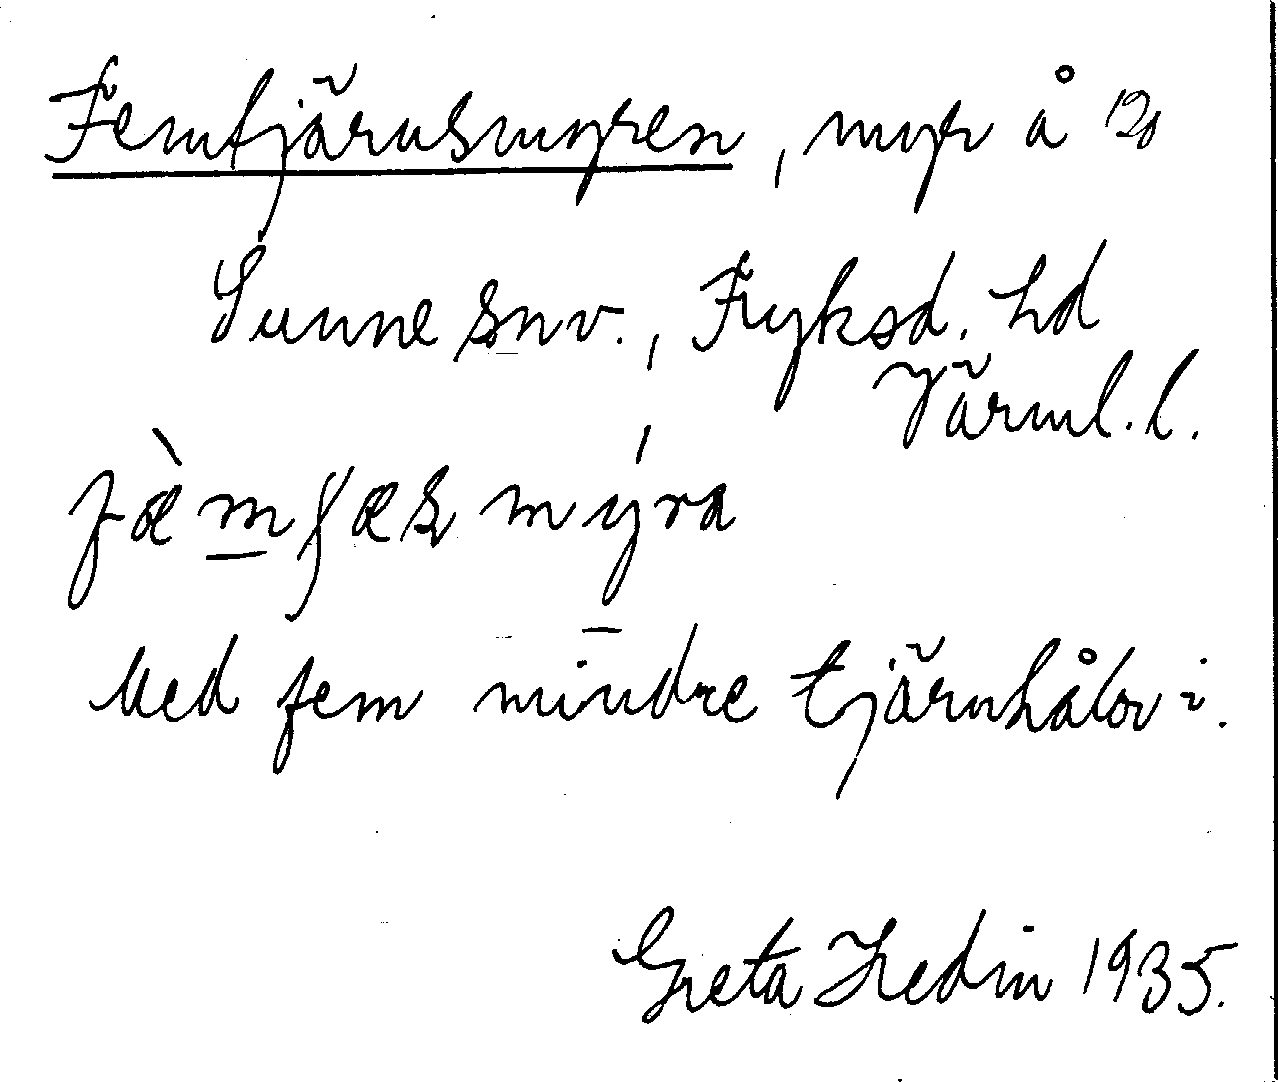 Femtjärnsmyren, myr å 120
Sunne snv., Fryksd. hd
Värml. l.
fæ̀m̲ʃæṣmýra
Med fem mindre tjärnhålor i.
Greta Hedin 1935.